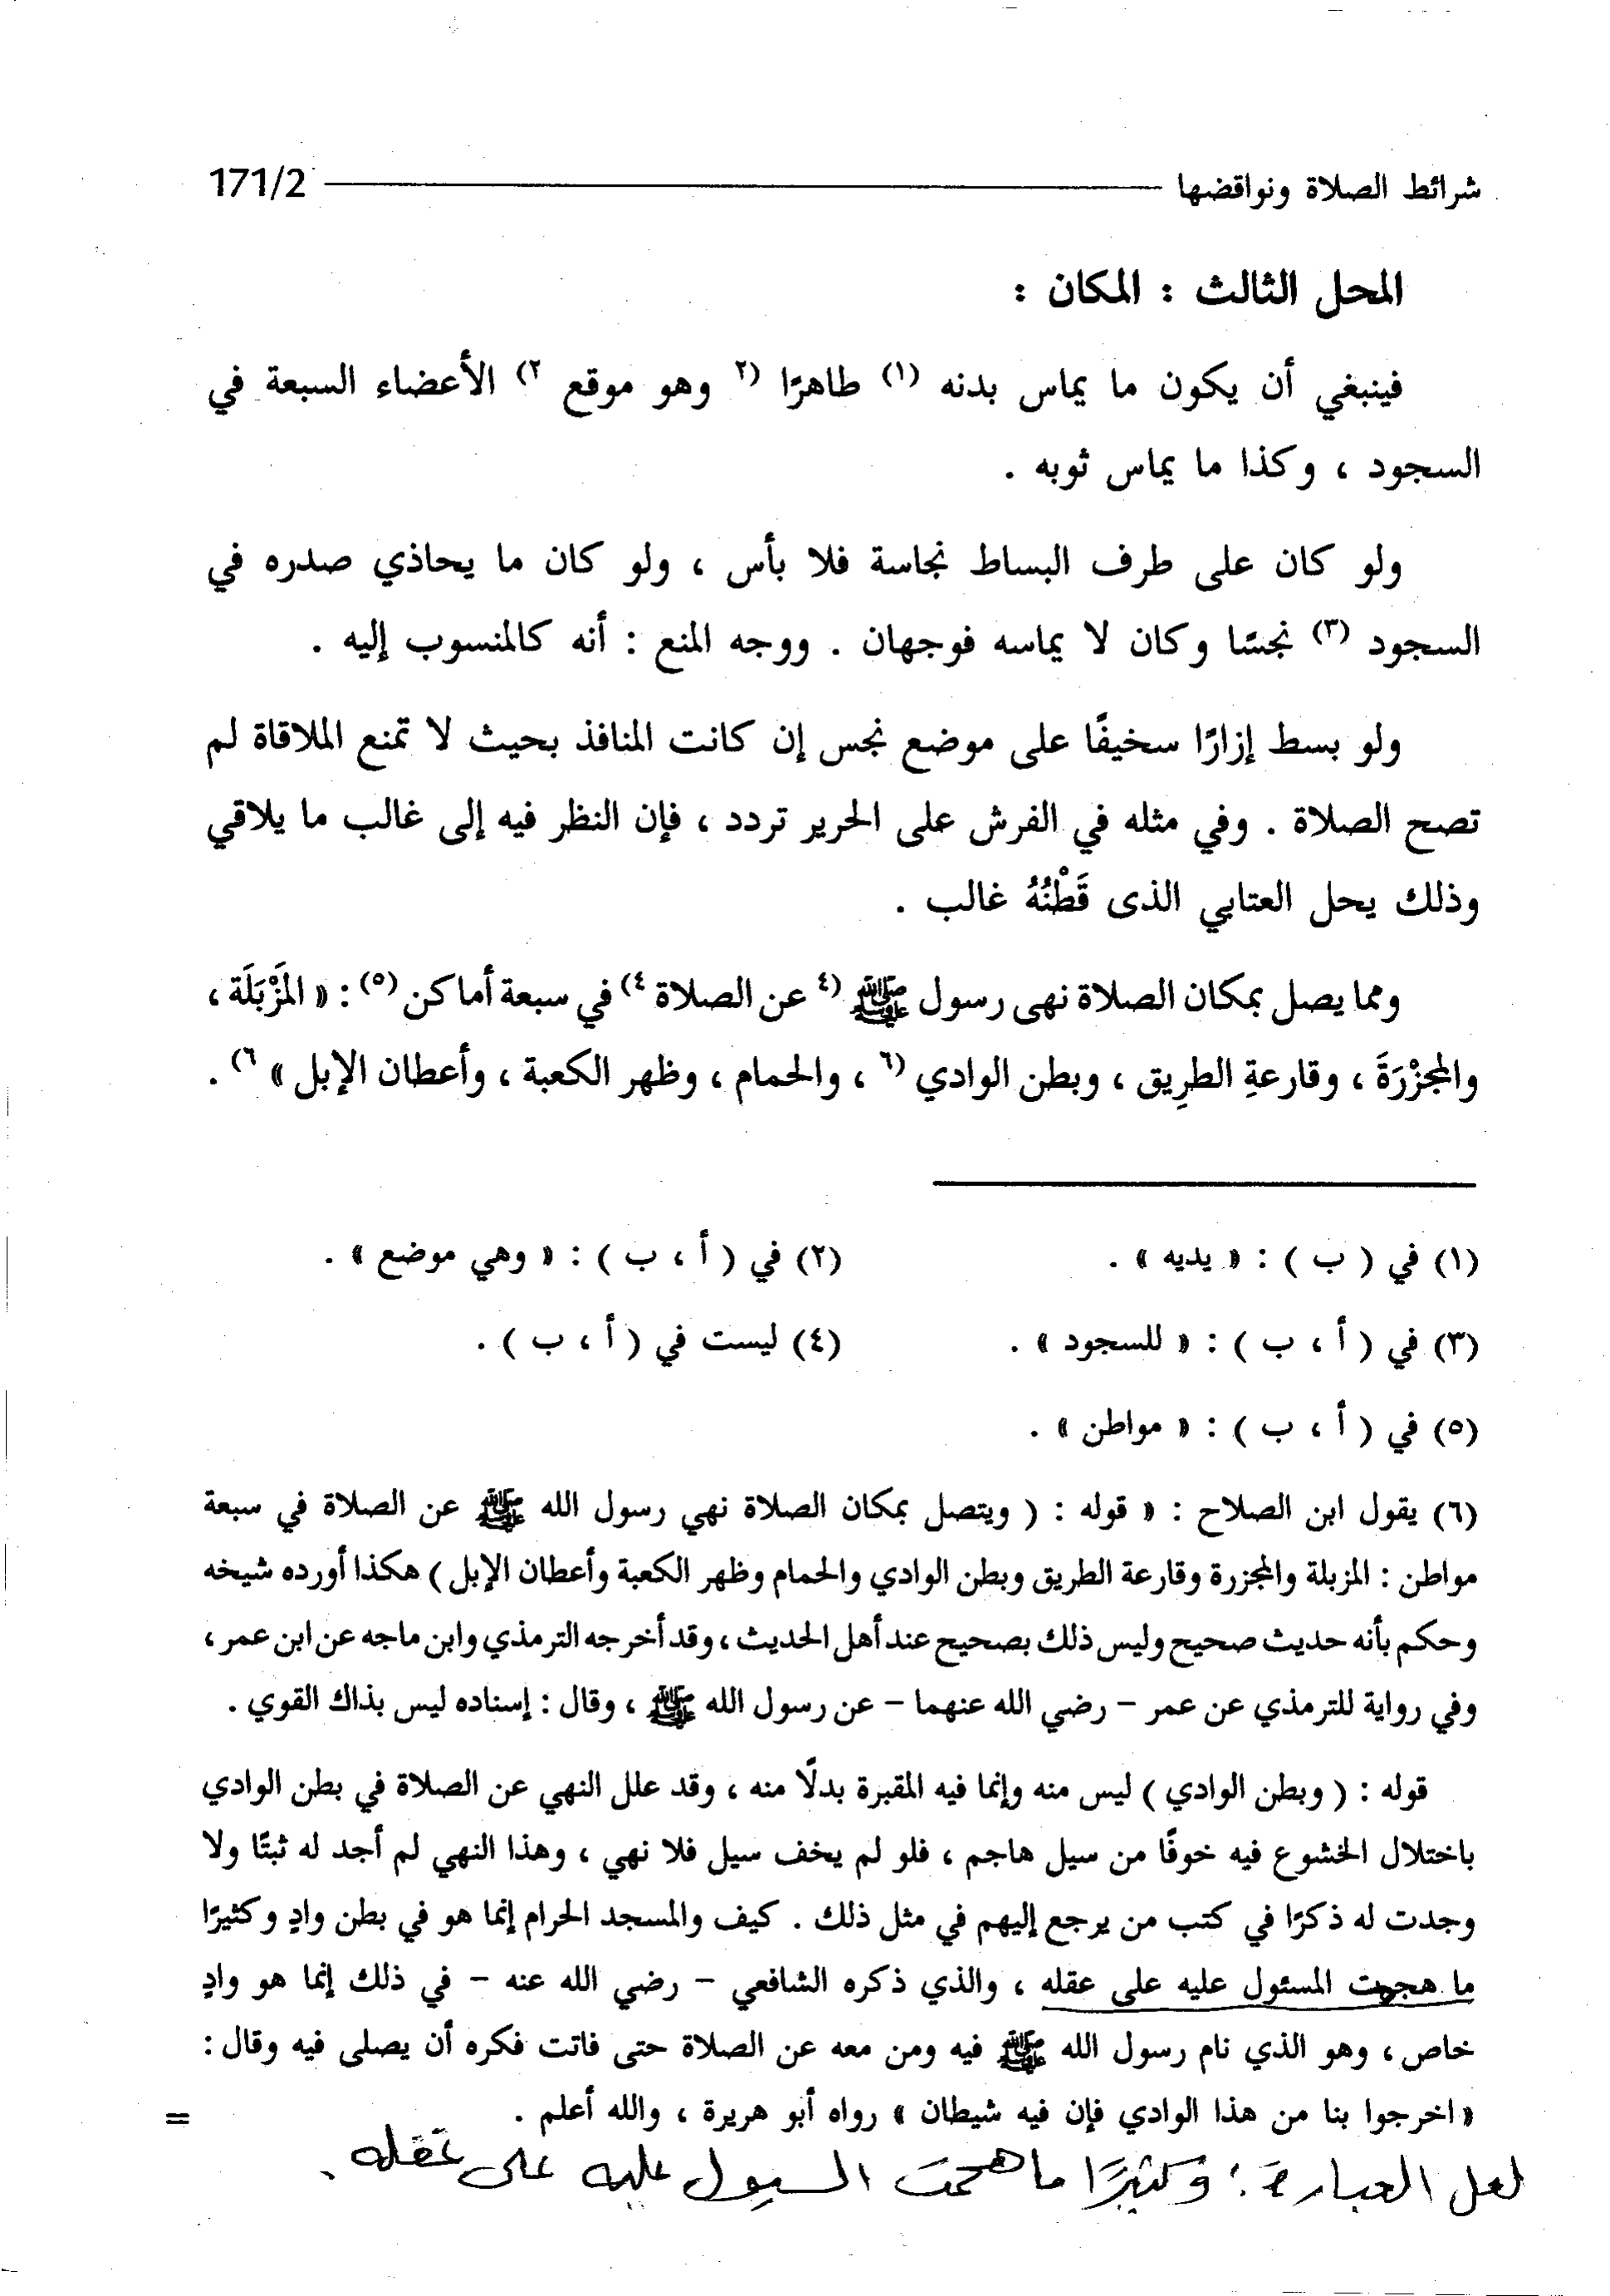 شرائط الصلاة ونواقضها 171/2
المحل الثالث : المكان :
فينبغي أن يكون ما يماس بدنه (١) طاهرًا (٢ وهو موقع ٢) الأعضاء السبعة في
السجود ، وكذا ما يماس ثوبه .
ولو كان على طرف البساط نجاسة فلا بأس ، ولو كان ما يحاذي صدره في
السجود (٣) نجسًا وكان لا يماسه فوجهان . ووجه المنع : أنه كالمنسوب إليه .
ولو بسط إزارًا سخيفًا على موضع نجس إن كانت المنافذ بحيث لا تمنع الملاقاة لم
تصح الصلاة . وفي مثله في الفرش على الحرير تردد ، فإن النظر فيه إلى غالب ما يلاقي
وذلك يحل العتابي الذى قَطْنُهُ غالب .
ومما يصل بمكان الصلاة نهى رسول ﷺ (٤ عن الصلاة ٤) في سبعة أماكن (٥) : « المَزْبَلَة ،
والمجْزْرَةَ ، وقارعةِ الطرِيق ، وبطن الوادي (٦ ، والحمام ، وظهر الكعبة ، وأعطان الإبل » ٦) .
(١) في ( ب ) : « يديه » . (٢) في ( أ ، ب ) : « وهي موضع » .
(٣) في ( أ ، ب ) : « للسجود » . (٤) ليست في ( أ ، ب ) .
(٥) في ( أ ، ب ) : « مواطن » .
(٦) يقول ابن الصلاح : « قوله : ( ويتصل بمكان الصلاة نهي رسول الله ﷺ عن الصلاة في سبعة
مواطن : المزبلة والمجزرة وقارعة الطريق وبطن الوادي والحمام وظهر الكعبة وأعطان الإبل ) هكذا أورده شيخه
وحكم بأنه حديث صحيح وليس ذلك بصحيح عند أهل الحديث ، وقد أخرجه الترمذي وابن ماجه عن ابن عمر ،
وفي رواية للترمذي عن عمر - رضي الله عنهما - عن رسول الله ﷺ ، وقال : إسناده ليس بذاك القوي .
قوله : ( وبطن الوادي ) ليس منه وإنما فيه المقبرة بدلًا منه ، وقد علل النهي عن الصلاة في بطن الوادي
باختلال الخشوع فيه خوفًا من سيل هاجم ، فلو لم يخف سيل فلا نهي ، وهذا النهي لم أجد له ثبتًا ولا
وجدت له ذكرًا في كتب من يرجع إليهم في مثل ذلك . كيف والمسجد الحرام إنما هو في بطن وادٍ وكثيرًا
ما هجمت المسئول عليه على عقله ، والذي ذكره الشافعي - رضي الله عنه - في ذلك إنما هو وادٍ
خاص ، وهو الذي نام رسول الله ﷺ فيه ومن معه عن الصلاة حتى فاتت فكره أن يصلى فيه وقال :
« اخرجوا بنا من هذا الوادي فإن فيه شيطان » رواه أبو هريرة ، والله أعلم . =
لعل العبارة : وكثيرًا ما هجمت السيول عليه على غفله .